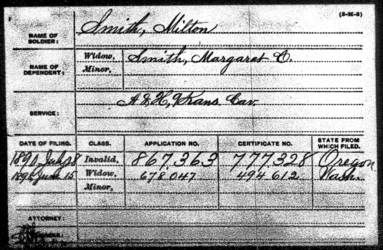 (3-H-6)
NAME OF SOLDIER: Smith, Milton
NAME OF DEPENDENT: Widow, Smith, Margaret C.
Minor,
SERVICE: Kans. Cav.
DATE OF FILING. CLASS. APPLICATION NO. CERTIFICATE NO. STATE FROM WHICH FILED.
1890 July Invalid, 867.363 777328 Oregon
June 15 Widow, 678047 494612 Wash.
Minor,
ATTORNEY: